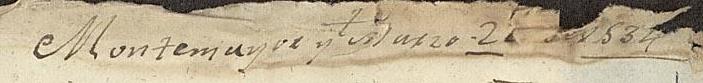 Montemayor y Marzo 2 de 1834